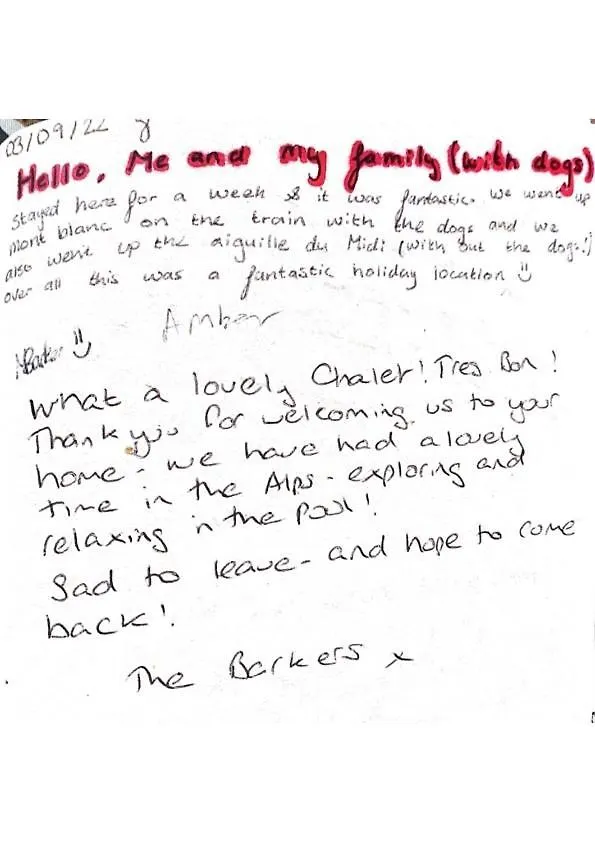 03/09/22
Hello, Me and my family (with dogs)
stayed here for a week & it was fantastic. We went up
mont blanc on the train with the dogs and we
also went up the aiguille du Midi (with out the dogs!)
over all this was a fantastic holiday location
Amber
ABarker
What a lovely Chalet! Tres Bon!
Thank you for welcoming us to your
home - we have had a lovely
time in the Alps - exploring and
relaxing in the Pool!
Sad to leave - and hope to come
back!
The Barkers x